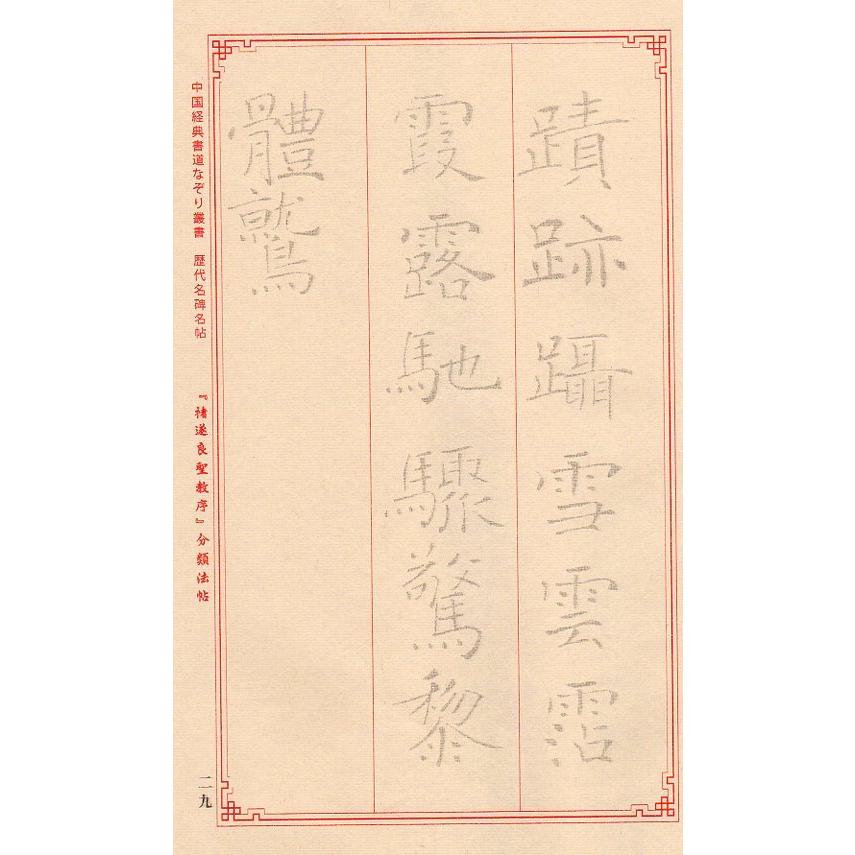 蹟跡躡雪雲霑
霞露馳驟驚黎
體鷲
中国経典書道なぞり叢書　歴代名碑名帖
『褚遂良聖教序』分類法帖
二九